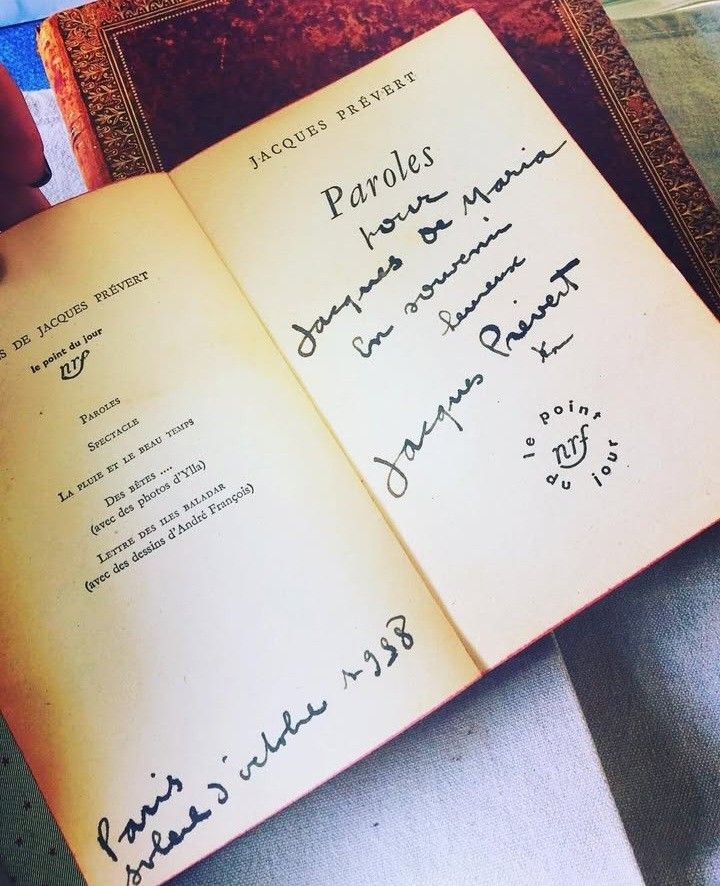 S DE JACQUES PRÉVERT
le point du jour
nrf
PAROLES
SPECTACLE
LA PLUIE ET LE BEAU TEMPS
DES BÊTES ....
(avec des photos d'Ylla)
LETTRE DES ILES BALADAR
(avec des dessins d'André François)
Paris
soleil d'octobre 1958
JACQUES PRÉVERT
Paroles
pour
Jacques De Maria
En souvenir
heureux
Jacques Prévert
le point du jour
nrf